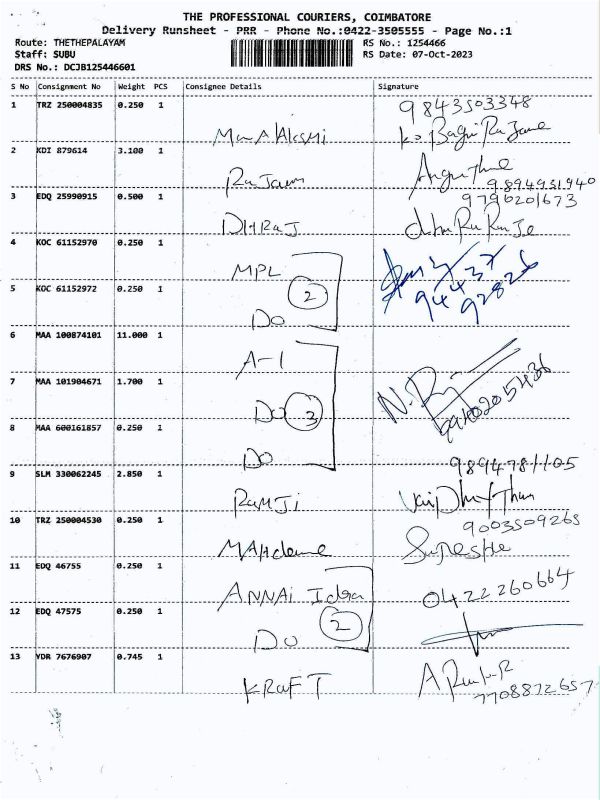 THE PROFESSIONAL COURIERS, COIMBATORE
Delivery Runsheet - PRR - Phone No.:0422-3505555 - Page No.:1
Route: THETHEPALAYAM RS No.: 1254466
Staff: SUBU RS Date: 07-Oct-2023
DRS No.: DCJB125446601
S No Consignment No Weight PCS Consignee Details Signature
1 TRZ 250004835 0.250 1 9843503348
2 KDI 879614 3.100 1
Rajaram 9894931940
3 EDQ 25990915 0.500 1 9790201673
DHRAJ
4 KOC 61152970 0.250 1
MPL 94437
5 KOC 61152972 0.250 1 2 92826
DO
6 MAA 100874101 11.000 1
A-1
7 MAA 101904671 1.700 1
DO 3 N.
8 MAA 600161857 0.250 1
DO
9 SLM 330062245 2.850 1 9894781105
RAMJi
10 TRZ 250004530 0.250 1 9003509265
11 EDQ 46755 0.250 1
ANNAi 0422260664
12 EDQ 47575 0.250 1
DO 2
13 YDR 7676907 0.745 1
KRAFT 7708872657